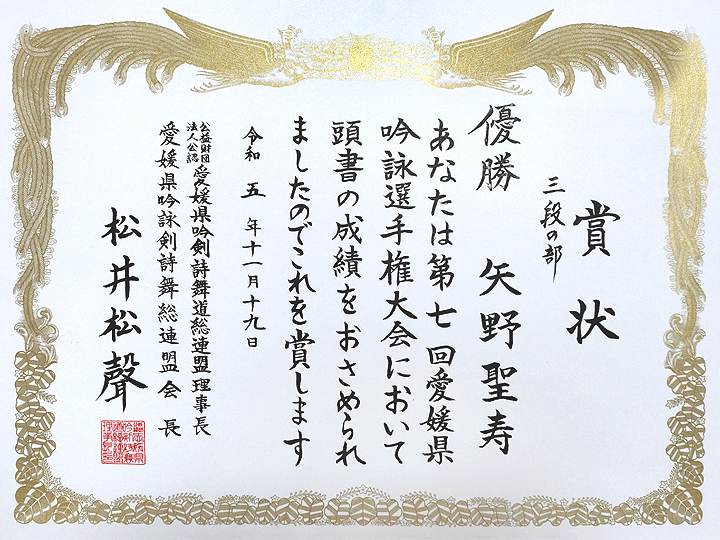 賞状
三段の部
優勝 矢野聖寿
あなたは第七回愛媛県
吟詠選手権大会において
頭書の成績をおさめられ
ましたのでこれを賞します
令和 五 年十一月十九日
公益財団
法人公認
愛媛県吟剣詩舞道総連盟理事長
愛媛県吟詠剣詩舞総連盟会長
松井松聲